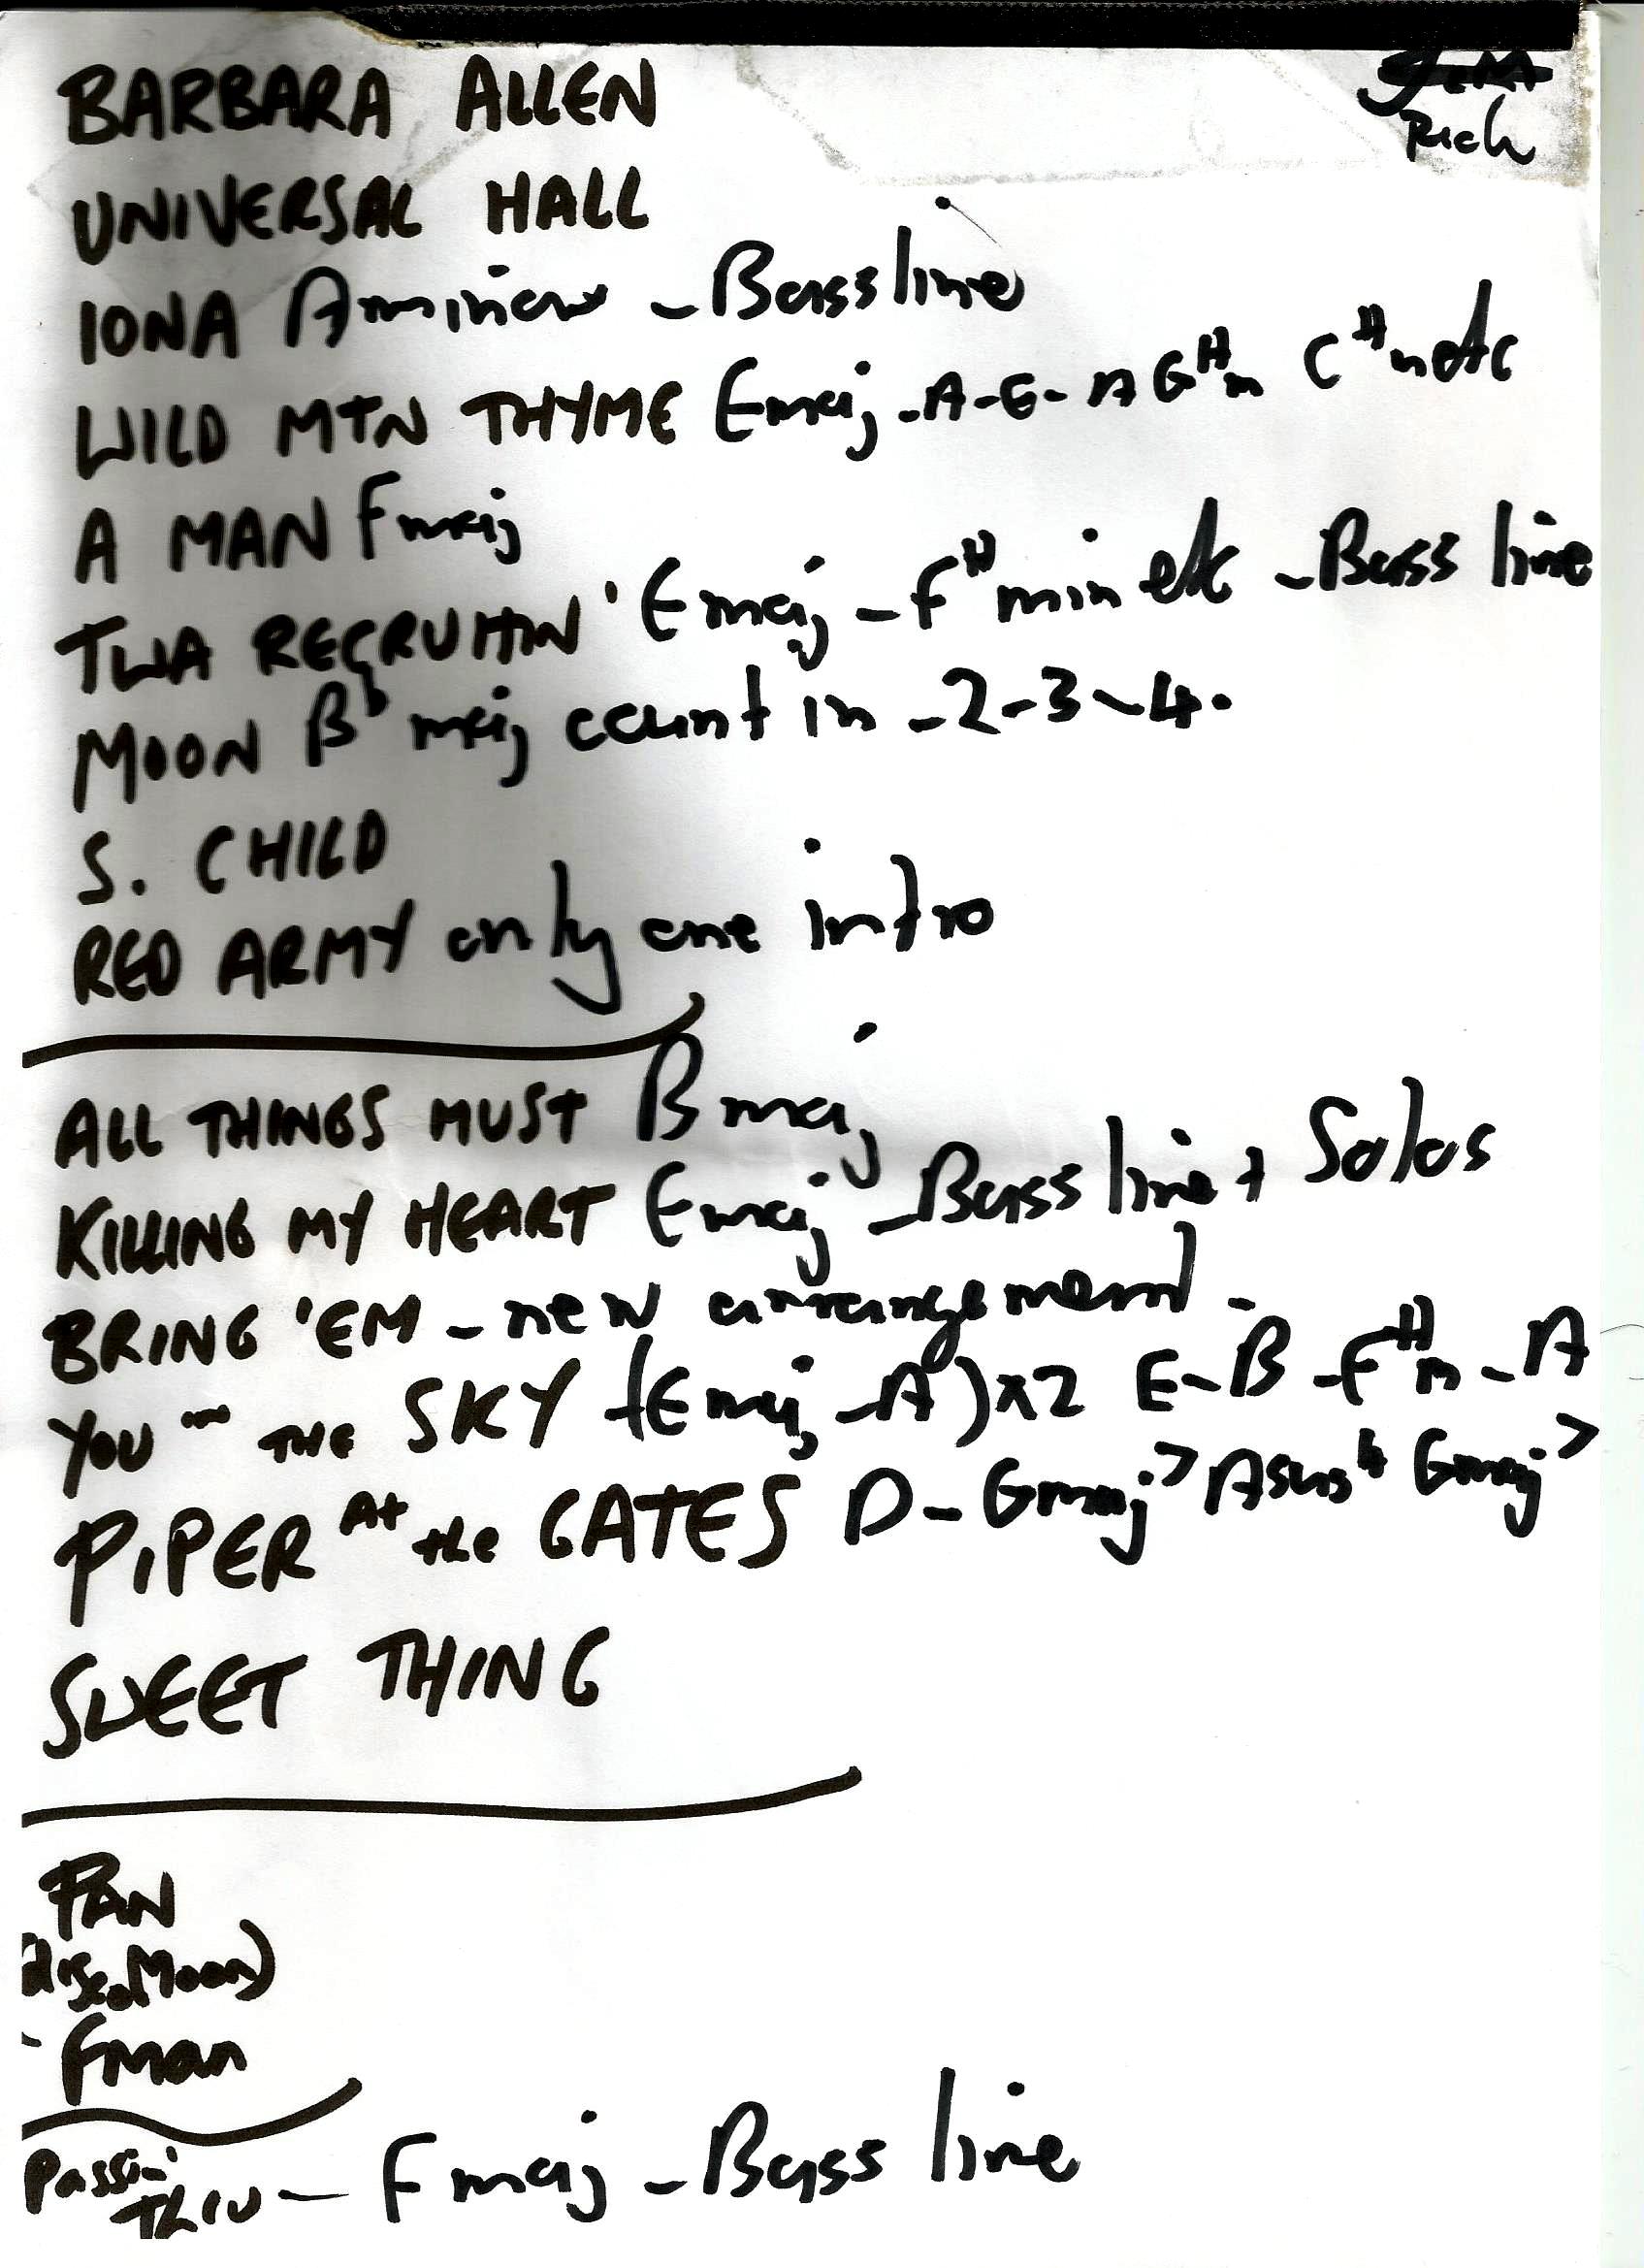 Rich
BARBARA ALLEN
UNIVERSAL HALL
IONA Aminor - Bass line
WILD MTN THYME Emaj - A - E - A G#m C#m etc
A MAN Fmaj
TWA RECRUITIN' Emaj - F#min etc - Bass line
MOON Bb maj count in - 2 - 3 - 4.
S. CHILD
RED ARMY only one intro
ALL THINGS MUST Bmaj
KILLING MY HEART Emaj - Bass line + Solos
BRING 'EM - new arrangement -
YOU in THE SKY (Emaj - A) x2 E - B - F#m - A
PIPER At the GATES D - Gmaj7 Asus4 Gmaj7
SWEET THING
PAN
Moon)
Fman
Passin'
THRU - Fmaj - Bass line